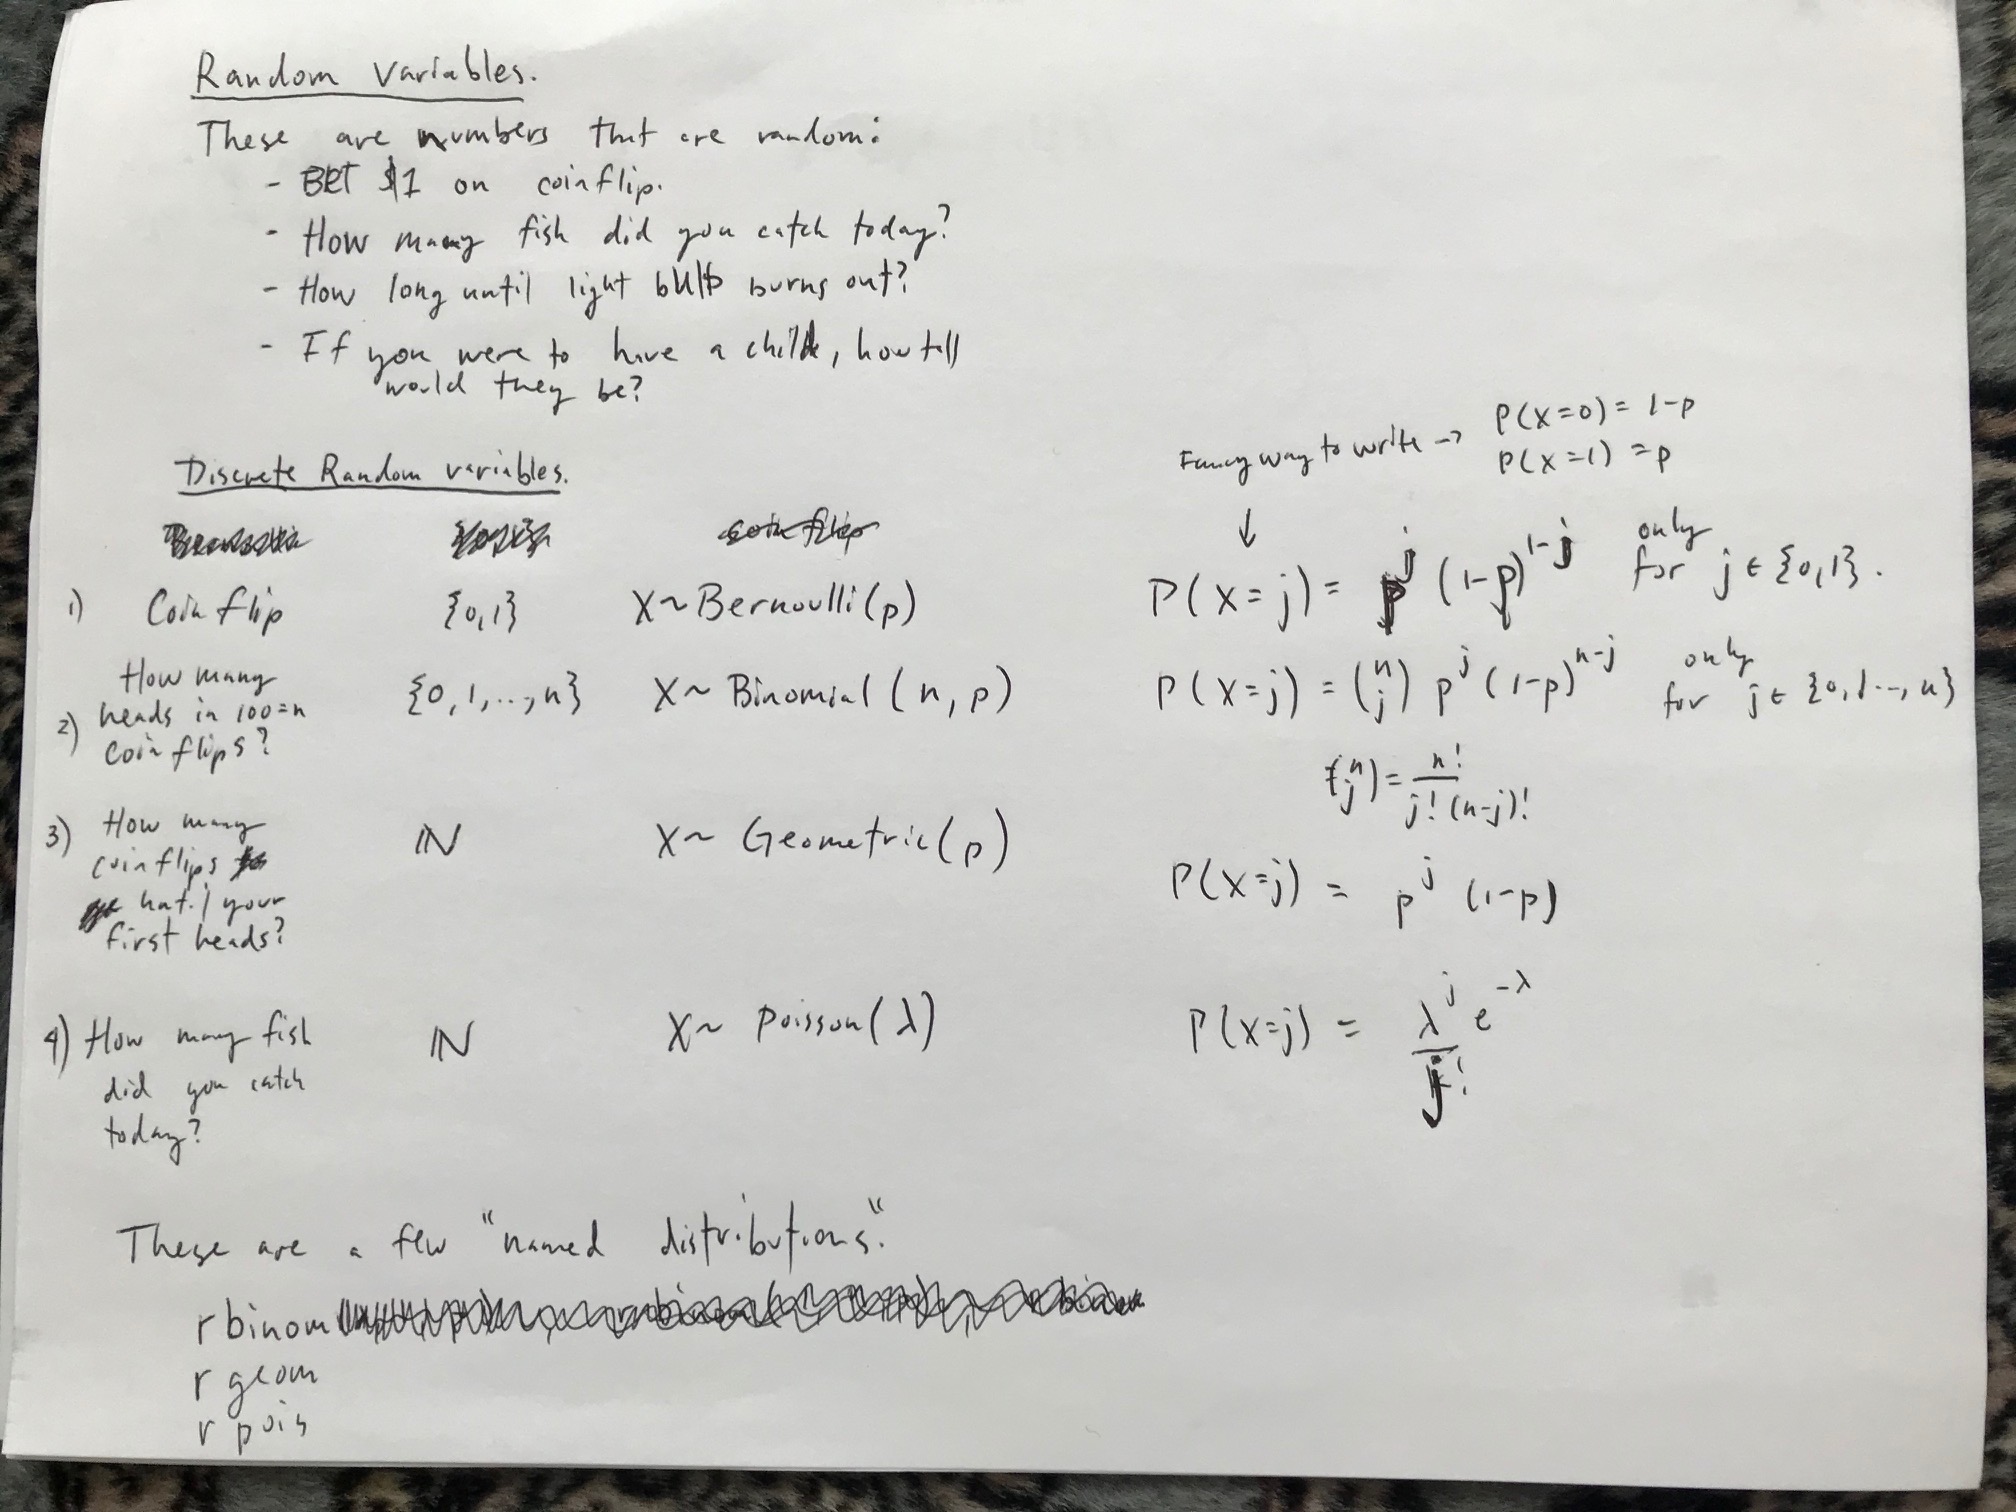 Random Variables.
These are numbers that are random:
- BET $1 on coinflip.
- How many fish did you catch today?
- How long until light bulb burns out?
- If you were to have a child, how tall
would they be?
Discrete Random variables.
Fancy way to write → P(X=0) = 1-p
P(X=1) = p
↓
1) Coin flip {0,1} X~Bernoulli(p) P(X=j) = p^j (1-p)^{1-j} only for j ∈ {0,1}.
2) How many
heads in 100=n
coin flips?
{0,1,..,n} X~ Binomial (n,p) P(X=j) = (n j) p^j (1-p)^{n-j} only for j ∈ {0,1...,n}
(n j) = n! / j!(n-j)!
3) How many
coin flips
until your
first heads?
ℕ X~ Geometric(p) P(X=j) = p^j (1-p)
4) How many fish
did you catch
today?
ℕ X~ Poisson(λ) P(X=j) = λ^j / j! e^{-λ}
These are a few "named distributions".
rbinom
rgeom
rpois